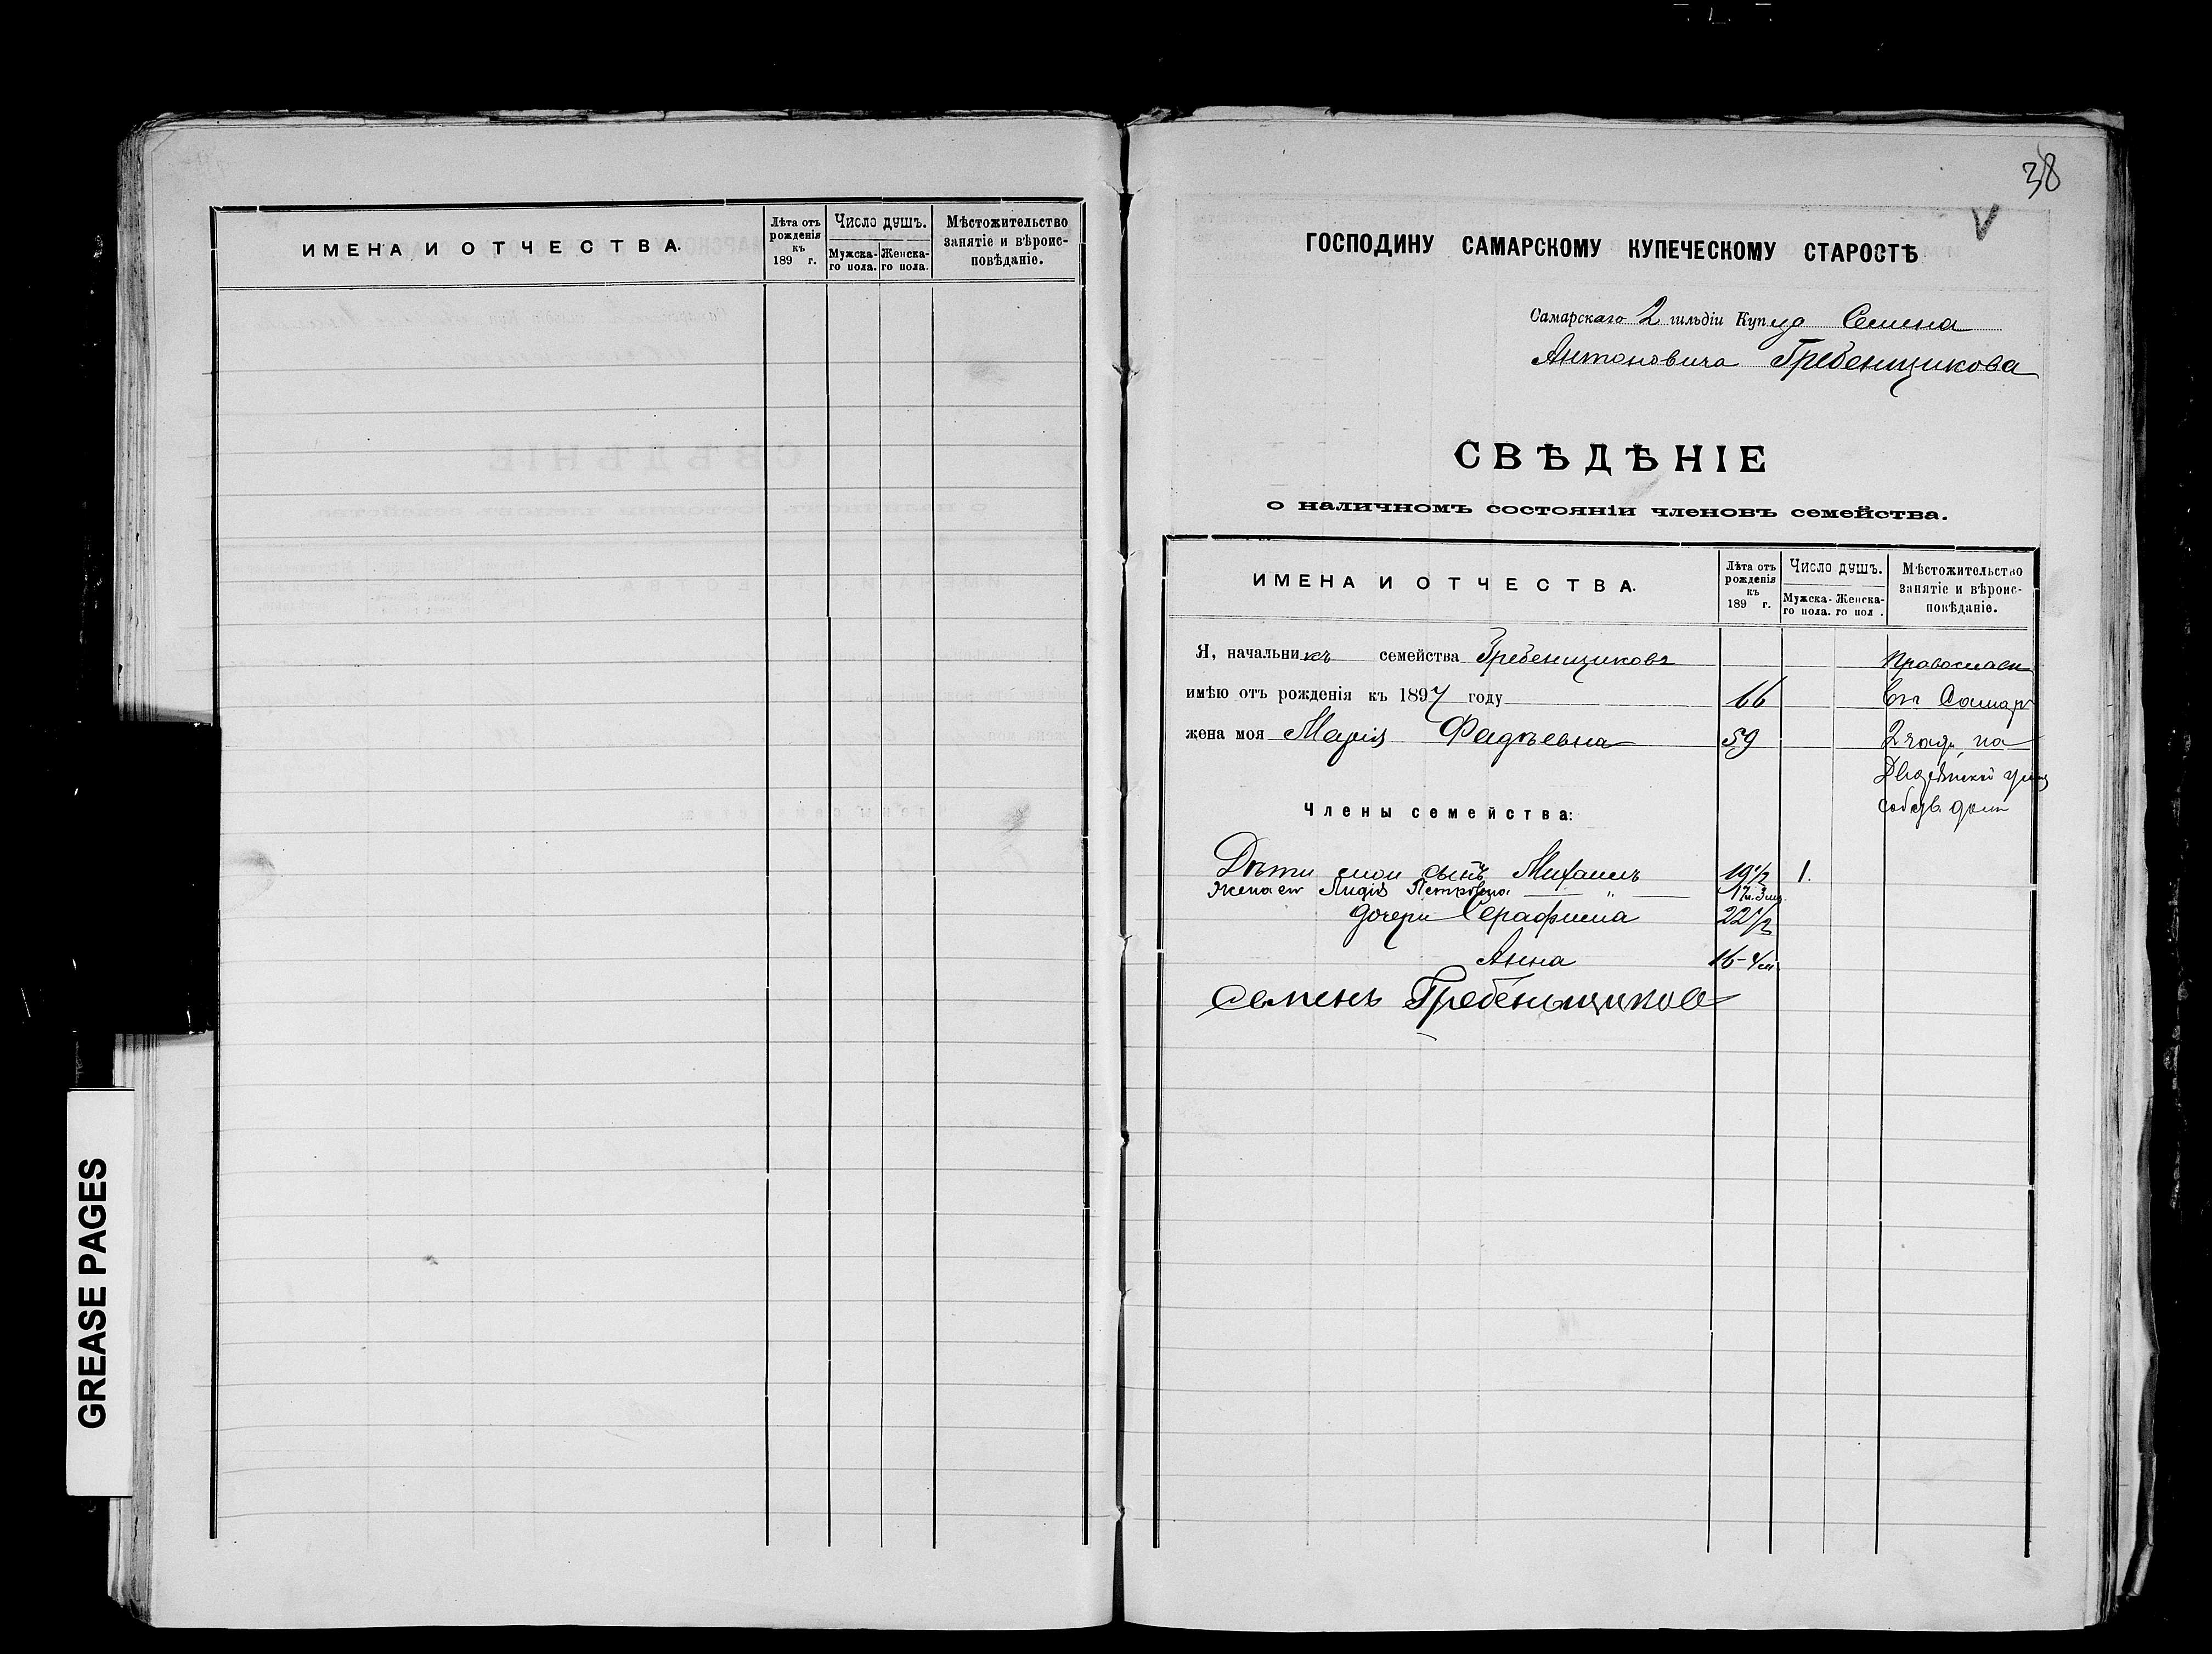 ИМЕНА И ОТЧЕСТВА.
Лѣта отъ рожденія къ 189 г.
Число душъ.
Мужска-го пола.
Женска-го пола.
Мѣстожительство занятіе и вѣроис-повѣданіе.
38
V
ГОСПОДИНУ САМАРСКОМУ КУПЕЧЕСКОМУ СТАРОСТѢ
Самарскаго 2 гильдіи Купца Семена
Антоновича Гребенщикова
СВѢДѢНІЕ
о наличномъ состояніи членовъ семейства.
ИМЕНА И ОТЧЕСТВА.
Лѣта отъ рожденія къ 189 г.
Число душъ.
Мужска-го пола.
Женска-го пол .
Мѣстожительство занятіе и вѣроис-повѣданіе.
Я, начальникъ семейства Гребенщиковъ Православн
имѣю отъ рожденія къ 1897 году 66 Въ Самар
жена моя Марія Фадѣевна 59 2 части, на
Дворянской улиц
собств. домъ
Члены семейства:
Дѣти мои сынъ Михаилъ 19 1/2 1.
Жена ег Лидія Петровна — " — 17 л. 3 мц.
дочери Серафима 22 1/2
Анна 16 - 4 м
Семенъ Гребеньщиковъ
GREASE PAGES